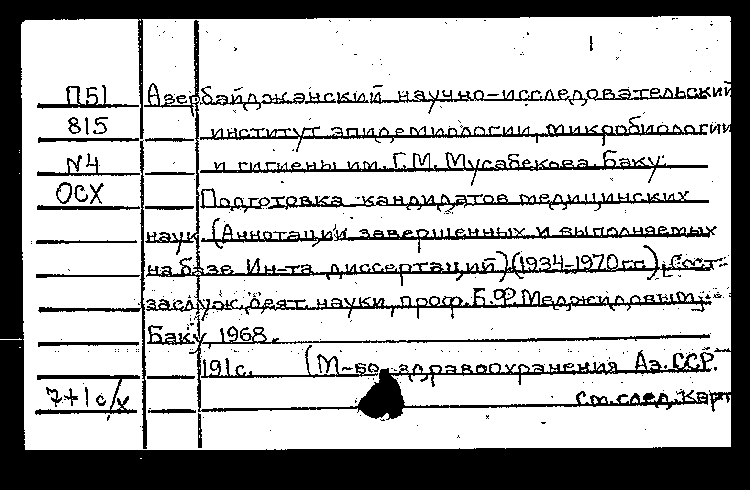 1
П51 Азербайджанский научно-исследовательский
815 институт эпидемиологии, микробиологии
N4 и гигиены им. Г.М. Мусабекова. Баку.
ОСХ Подготовка кандидатов медицинских
наук. (Аннотации завершенных и выполняемых
на базе Ин-та диссертаций) (1934-1970гг.), Сост.
заслуж. деят. науки, проф. Б.Ф. Меджидовым.
Баку, 1968.
191с. (М-во здравоохранения Аз. ССР.
7+1с/х См. след. карт